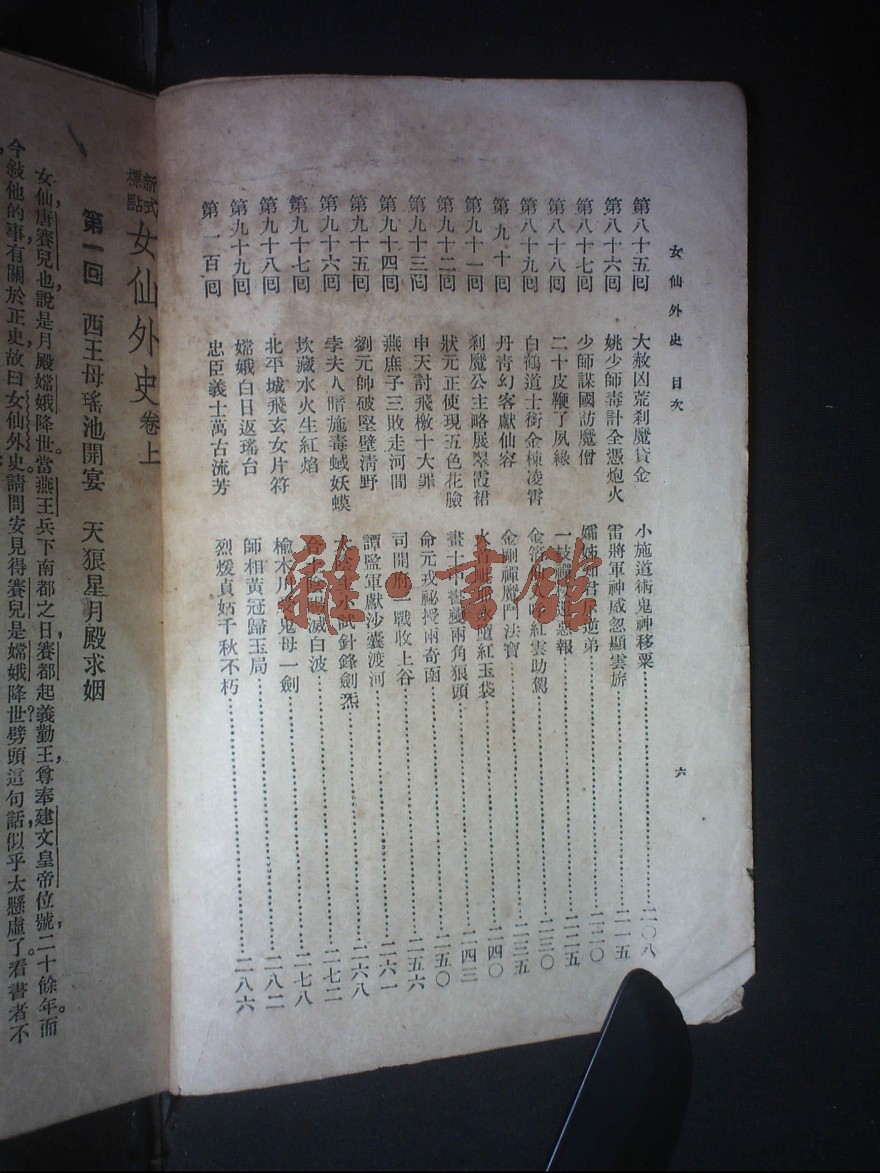 女仙外史 目次
六
第八十五回 大赦凶荒剎魔貸金 小施道術鬼神移粟 二〇八
第八十六回 姚少師毒計全憑炮火 雷將軍神威忽顯雲旂 二一五
第八十七回 少師謀國訪魔僧 孀姊知君斥逆弟 二二〇
第八十八回 二十皮鞭了夙緣 一枝禪杖還惡報 二二五
第八十九回 白鶴道士衝金棟凌霄 金箔仙 紅雲助駕 二三〇
第九十回 丹青幻客獻仙容 金剛禪魔鬥法寶 二三五
第九十一回 剎魔公主略展翠霞裙 火首 墮紅玉袋 二四〇
第九十二回 狀元正使現五色花臉 畫士中書變兩角狼頭 二四三
第九十三回 申天討飛檄十大罪 命元戎祕授兩奇函 二五〇
第九十四回 燕庶子三敗走河間 司開府一戰收上谷 二五六
第九十五回 劉元帥破堅壁清野 譚監軍獻沙囊渡河 二六一
第九十六回 孛夫人暗施毒蜮妖蟆 太陰主小試針鋒劍炁 二六八
第九十七回 坎藏水火生紅焰 土 滅白波 二七二
第九十八回 北平城飛玄女片符 榆木川受鬼母一劍 二七八
第九十九回 嫦娥白日返瑤台 師相黃冠歸玉局 二八二
第一百回 忠臣義士萬古流芳 烈媛貞姑千秋不朽 二八六
新式標點 女仙外史 卷上
第一回 西王母瑤池開宴 天狼星月殿求姻
女仙唐賽兒也，說是月殿嫦娥降世。當燕王兵下南都之日，賽都起義勤王，尊奉建文皇帝位號，二十餘年。而
今敍他的事，有關於正史，故曰女仙外史。請問安見得賽兒是嫦娥降世？劈頭這句話，似乎太懸虛了。看書者不